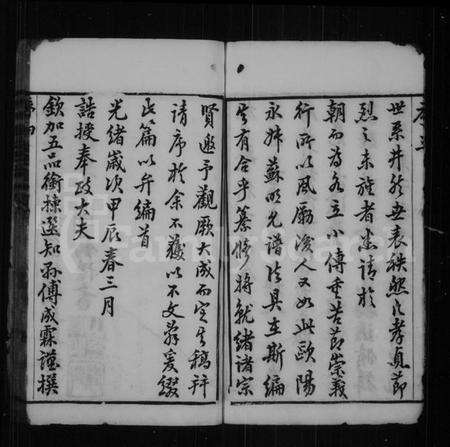 世系井然世表秩然凡孝貞節
烈之未旌者悉請於
朝而為各立小傳重苦節崇義
行所以風勵後人又如此歐陽
永叔蘇明允譜法具在斯編
其有合乎纂修將就緒諸宗
賢邀予觀厥大成而定其稿并
請序於余不獲以不文辭爰綴
此篇以弁編首
光緒歲次甲辰春三月
誥授奉政大夫
欽加五品銜揀選知縣傅成霖謹撰
FamilySearch